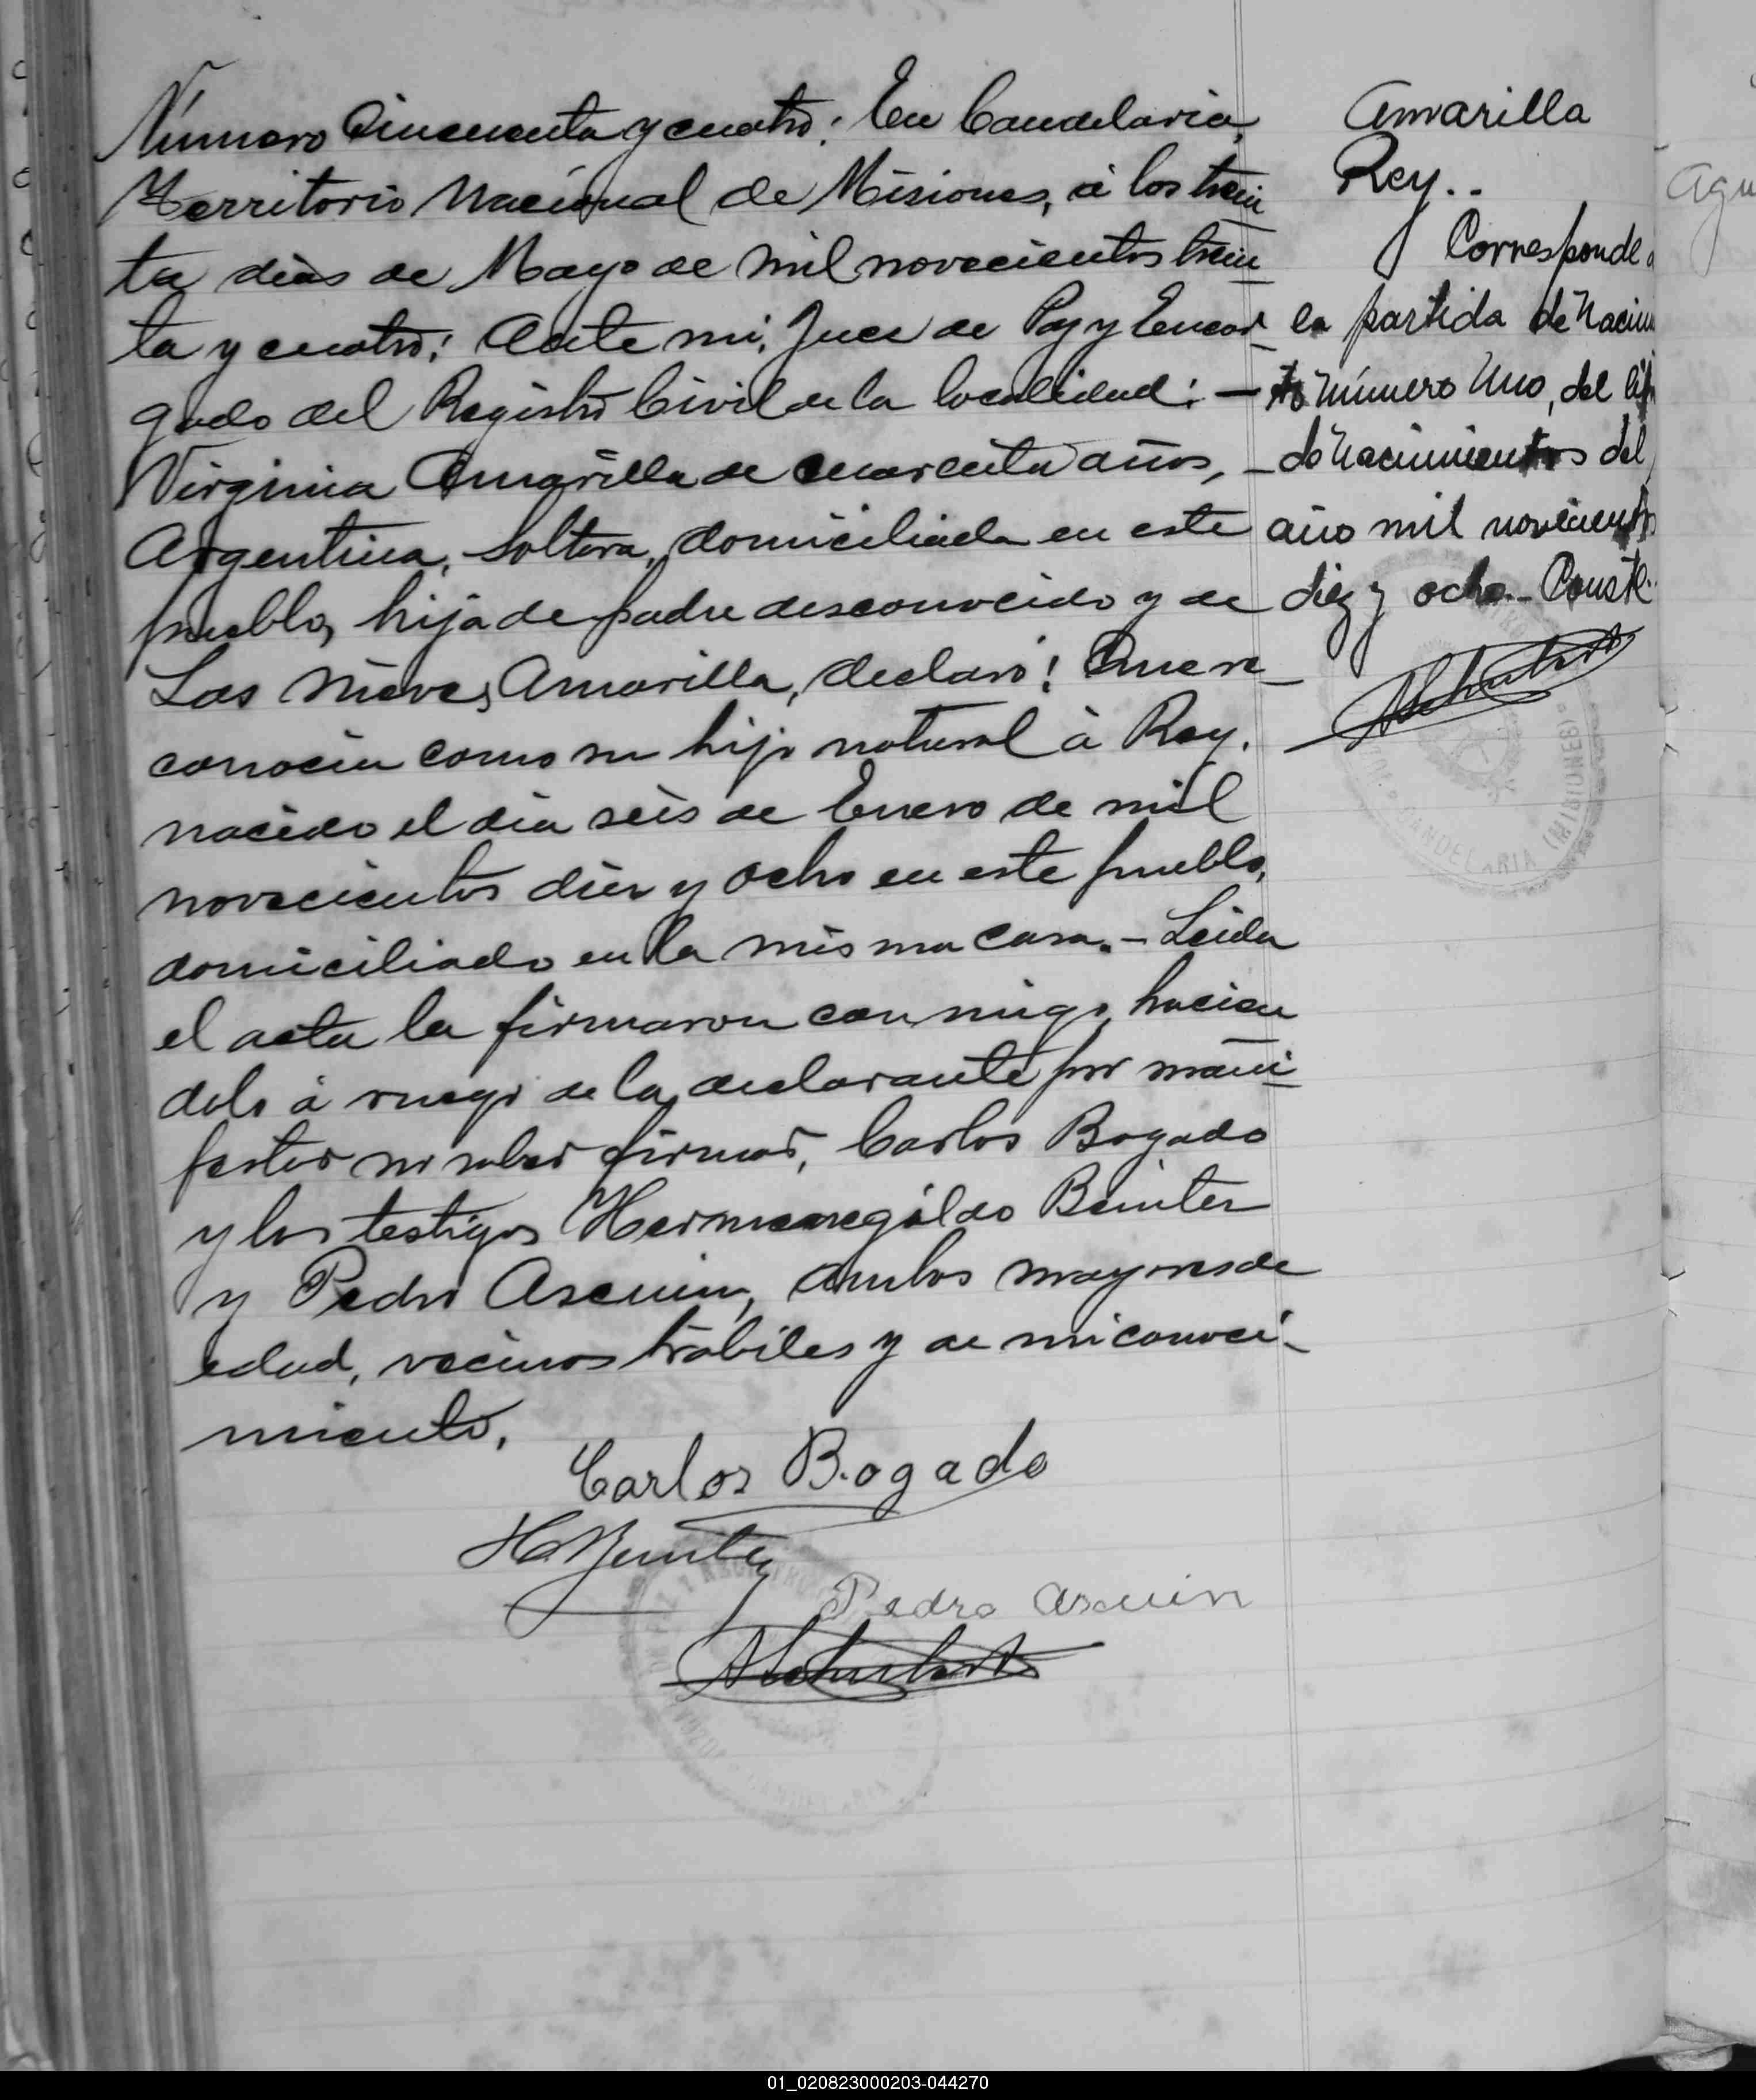 Número Cincuenta y cuatro: En Candelaria,
Territorio Nacional de Misiones, á los trein
ta dias de Mayo de mil novecientos trein_
ta y cuatro: Ante mi, Juez de Paz y Encar_
gado del Registro Civil de la localidad: —
Virginia Amarilla de cuarenta años, _
Argentina, soltera, domiciliada en este
pueblo, hija de padre desconocido y de
Las Nieves Amarilla, declaró: Que re_
conocia como su hijo natural à Rey,
nacido el dia seis de Enero de mil
novecientos diez y ocho en este pueblo,
domiciliado en la misma casa.- Leida
el acta la firmaron conmigo, hacien
dolo á ruego de la declarante por mani_
festar no saber firmar, Carlos Bogado
y los testigos Hermenegildo Benitez
y Pedro Ascuin, ambos mayores de
edad, vecinos hábiles y de mi conoci_
miento.
Carlos Bogado
H. Benitez
Pedro Ascuin
Amarilla
Rey..
Corresponde a
la partida de nacim
to número Uno, del lib
de nacimientos del
año mil novecientos
diez y ocho.- Conste.
CANDELARIA (MISIONES)
01_020823000203-044270